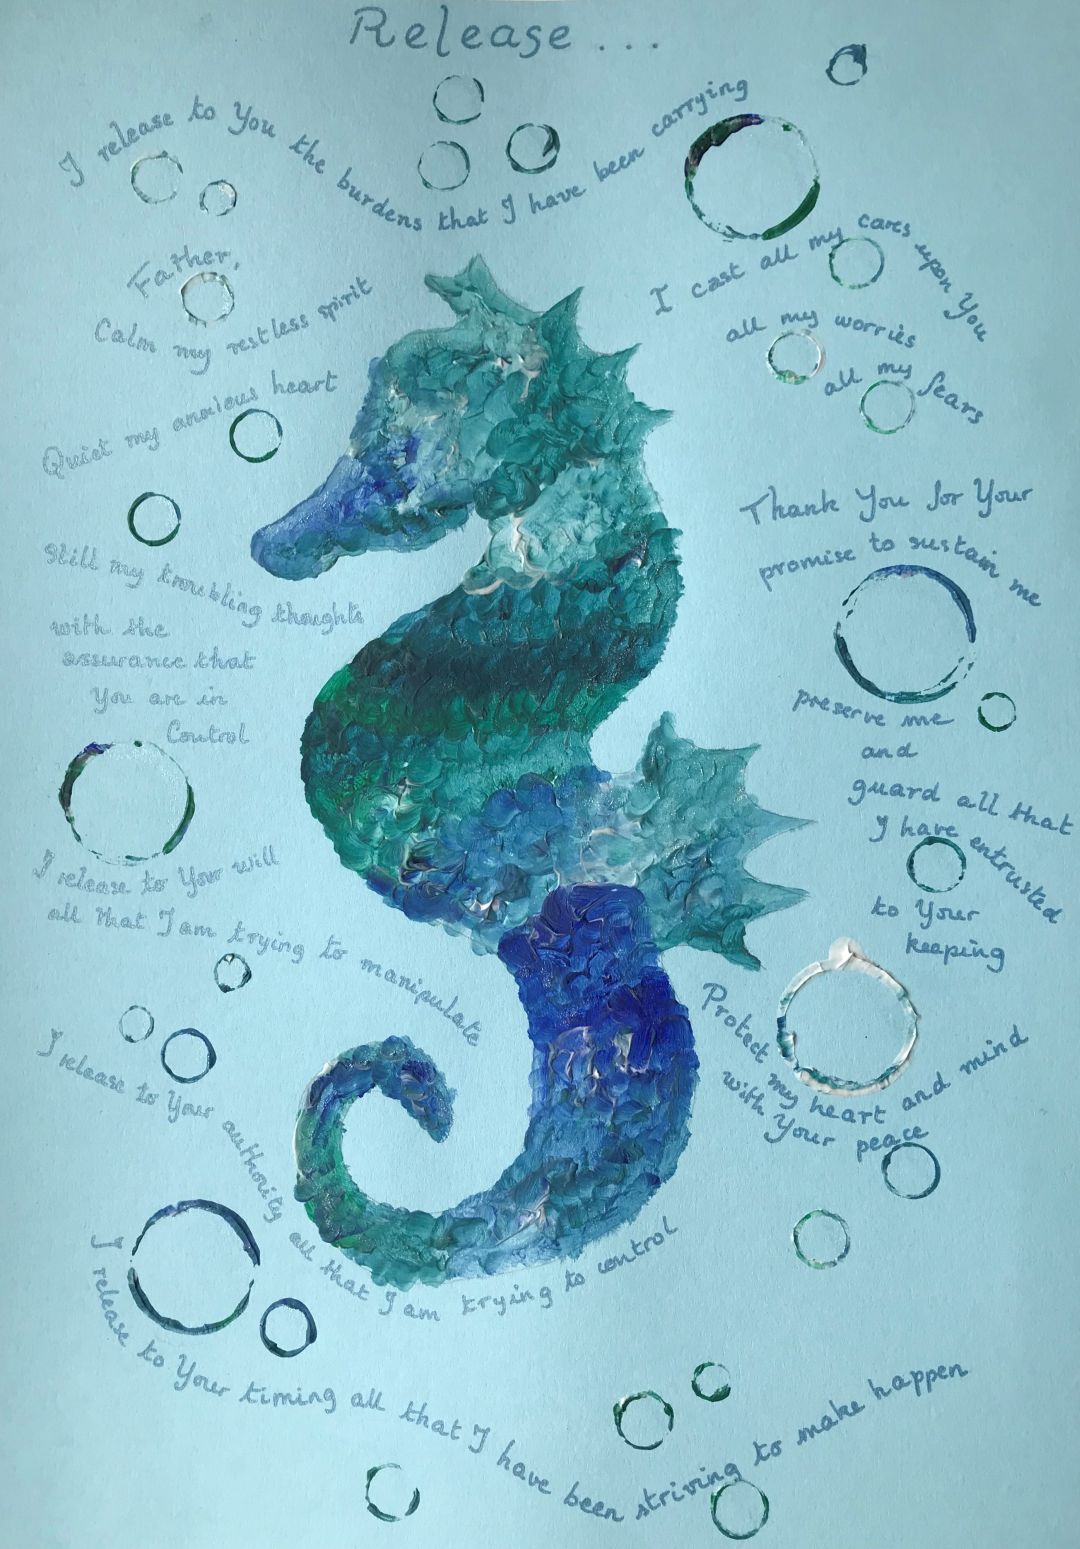 Release...
I release to You the burdens that I have been carrying
Father,
Calm my restless spirit
Quiet my anxious heart
Still my troubling thoughts
with the
assurance that
You are in
Control
I release to Your will
all that I am trying to manipulate
I release to Your authority all that I am trying to control
I release to Your timing all that I have been striving to make happen
I cast all my cares upon You
all my worries
all my fears
Thank You for Your
promise to sustain me
preserve me
and
guard all that
I have entrusted
to Your
keeping
Protect my heart and mind
with Your peace